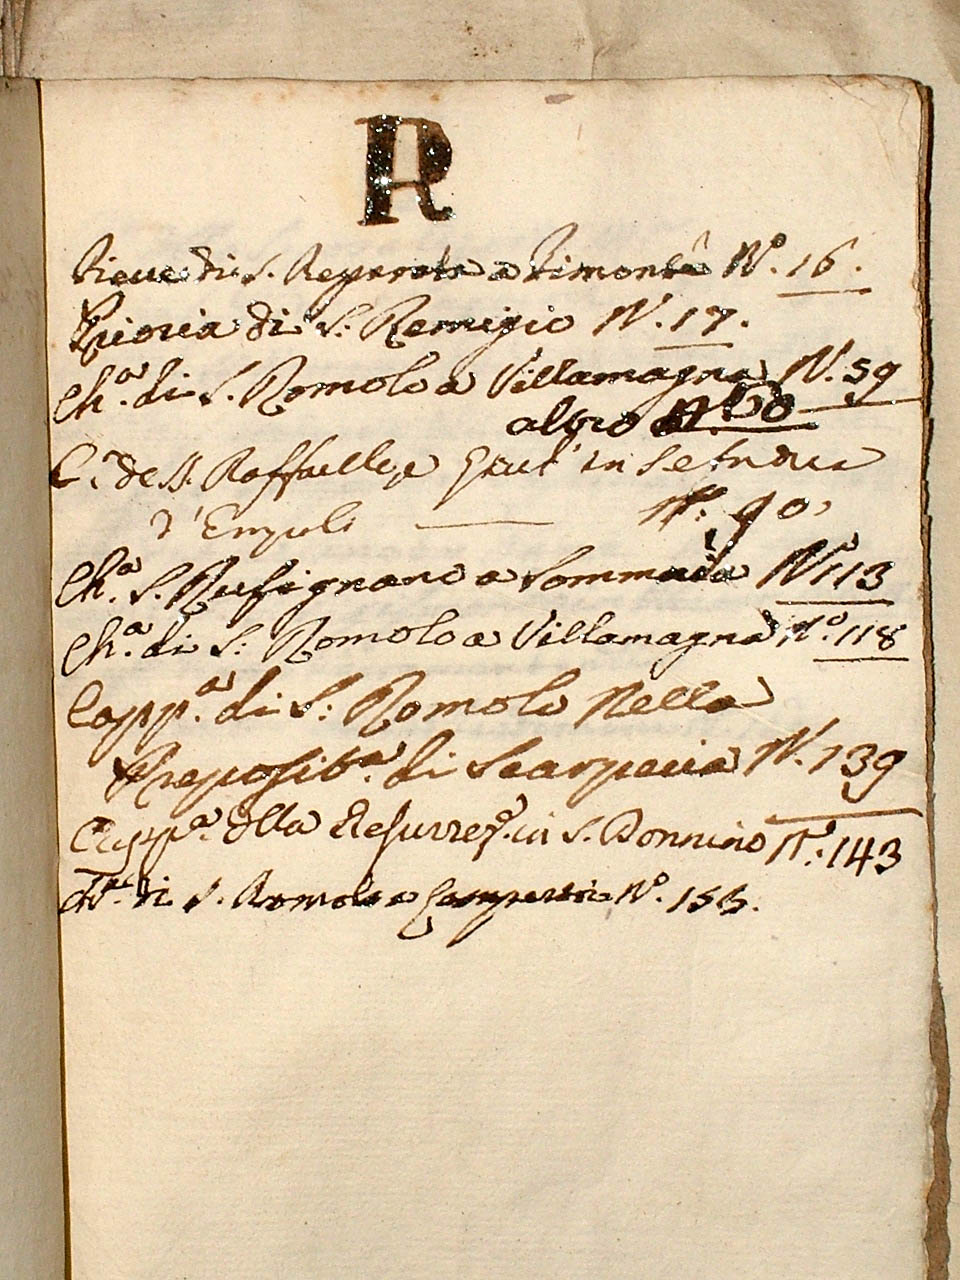 R
Pieve di S. Reparata a Pimonte N.° 16.
Prioria di S. Remigio N. 17.
Ch.ª di S. Romolo a Villamagna N. 59
altro N. 60
C.ª de SS. Raffaelle, e Giust' in
d' Empoli — N. 90.
Ch.ª S. Rufignano a Sommaia N. 113
Ch.ª di S. Romolo a Villamagna N.° 118
Capp.ª di S. Romolo Nella
Preposit.ª di Scarperia N. 139
Capp.ª della Resurrez.e in S. Donnino N. 143
di S. Romolo a N.°